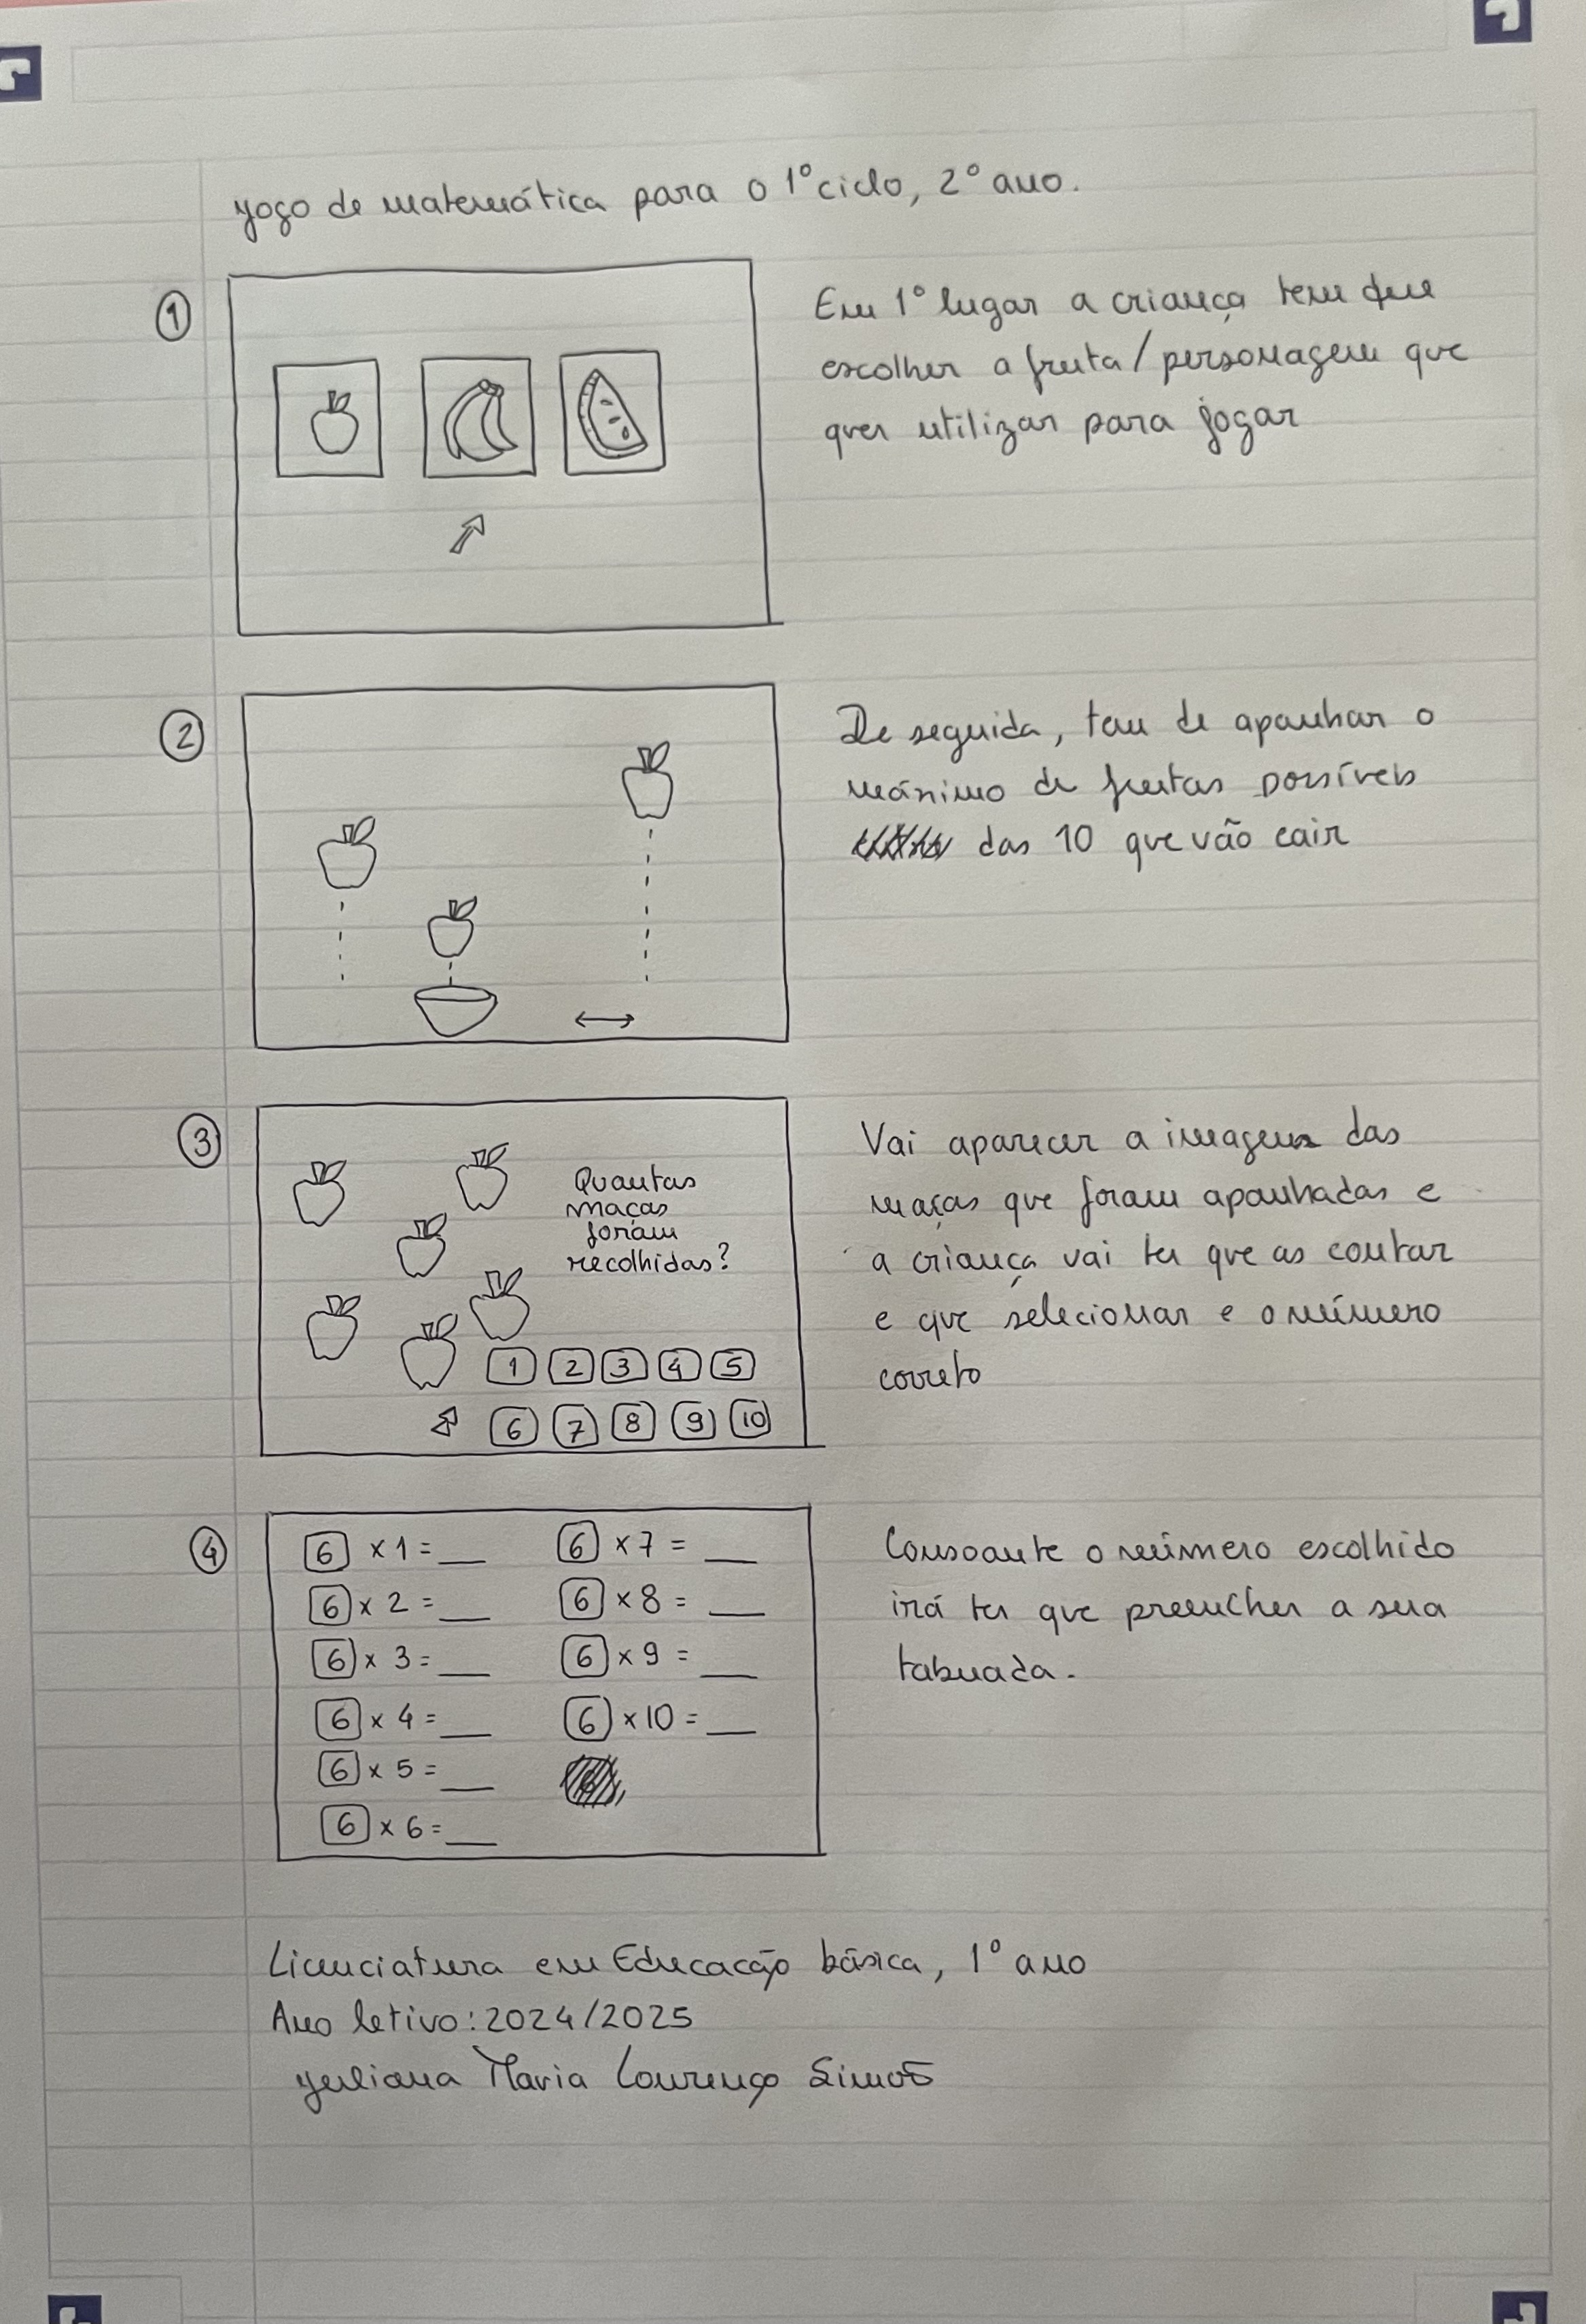 Jogo de matemática para o 1º ciclo, 2º ano.
1
Em 1º lugar a criança tem que
escolher a fruta/personagem que
quer utilizar para jogar
2
De seguida, tem de apanhar o
máximo de frutas possíveis
das 10 que vão cair
3
Quantas
maças
foram
recolhidas?
1 2 3 4 5
6 7 8 9 10
Vai aparecer a imagem das
maças que foram apanhadas e
a criança vai ter que as contar
e que selecionar e o número
correto
4
6 x 1 = __ 6 x 7 = __
6 x 2 = __ 6 x 8 = __
6 x 3 = __ 6 x 9 = __
6 x 4 = __ 6 x 10 = __
6 x 5 = __
6 x 6 = __
Consoante o número escolhido
irá ter que preencher a sua
tabuada.
Licenciatura em Educação básica, 1º ano
Ano letivo: 2024/2025
Juliana Maria Lourenço